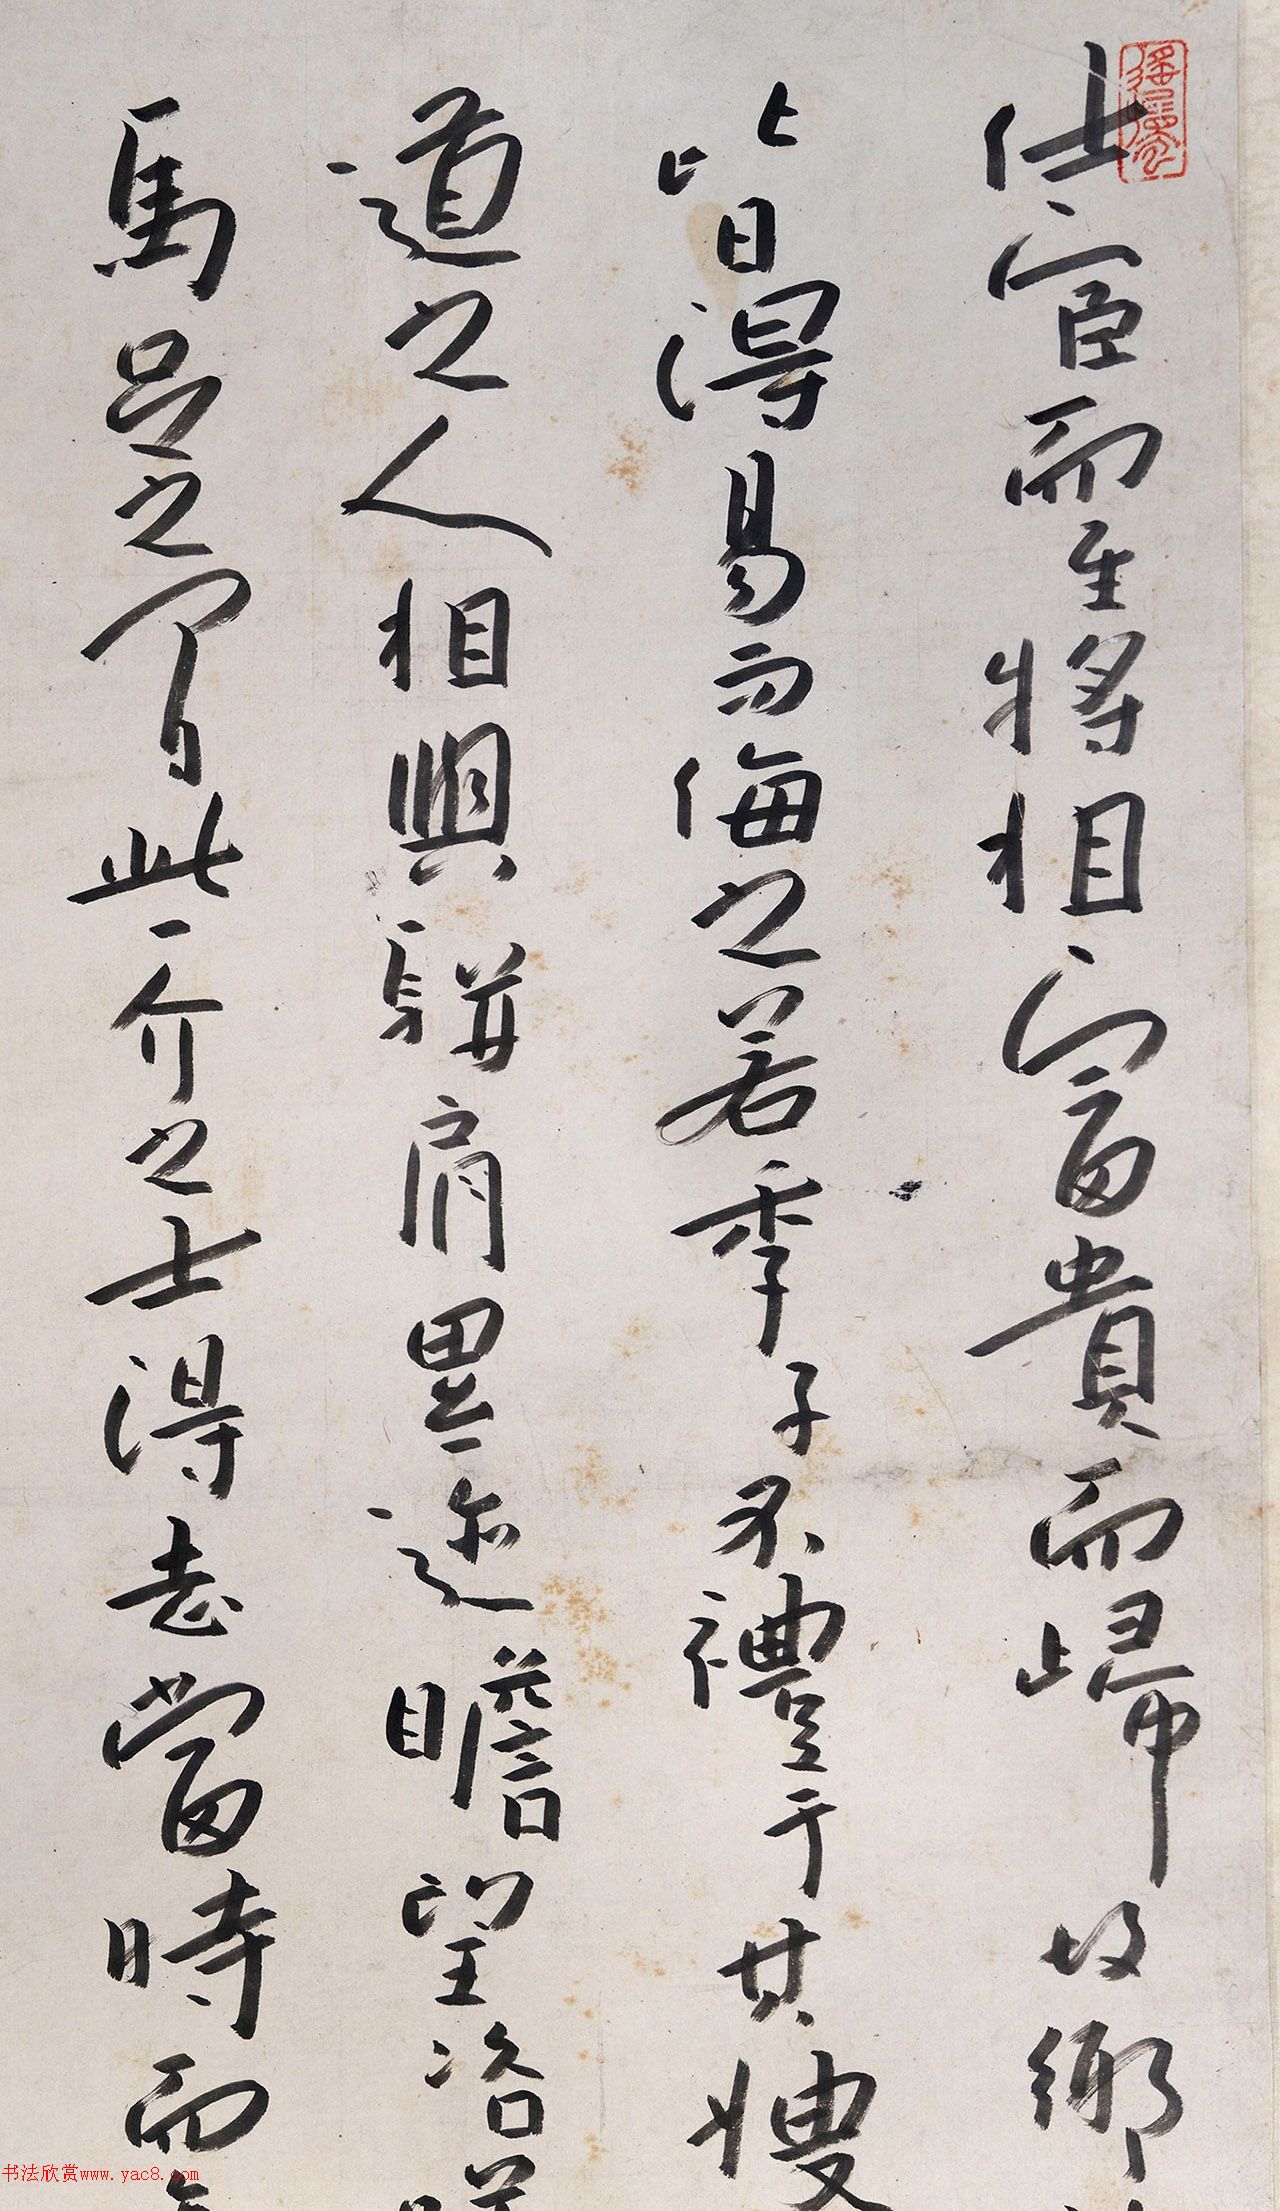 仕宦而至將相富貴而歸故鄉
皆得易而侮之若季子不禮于其嫂
道之人相與駢肩累迹瞻望咨嗟
馬足之間此一介之士得志當時而
书法欣赏www.yac8.com